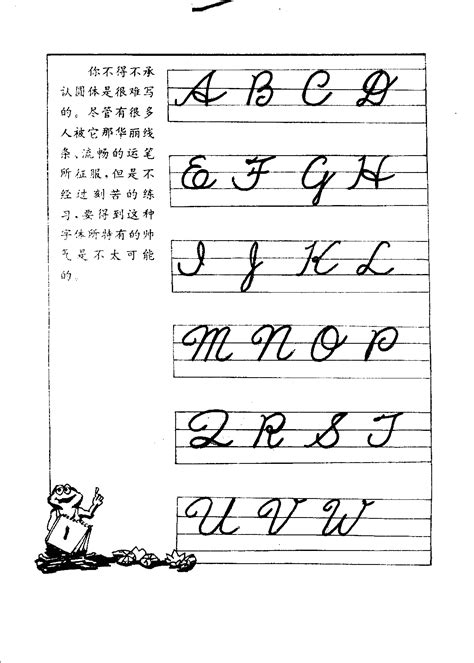 你不得不承
认圆体是很难写
的。尽管有很多
人被它那华丽线
条、流畅的运笔
所征服，但是不
经过刻苦的练
习，要得到这种
字体所特有的帅
气是不太可能
的。
A B C D
E F G H
I J K L
M N O P
Q R S T
U V W
1